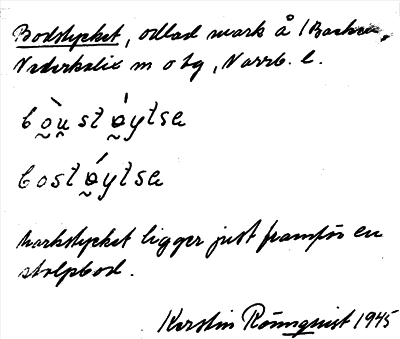 Bodstycket, odlad mark å 1 Backen,
Nederkalix sn o tg, Norrb. l.
bò̰ṵstǿ̰ytsɐ
bostǿ̰ytsɐ
Markstycket ligger just framför en
stolpbod.
Kerstin Rönnquist 1945